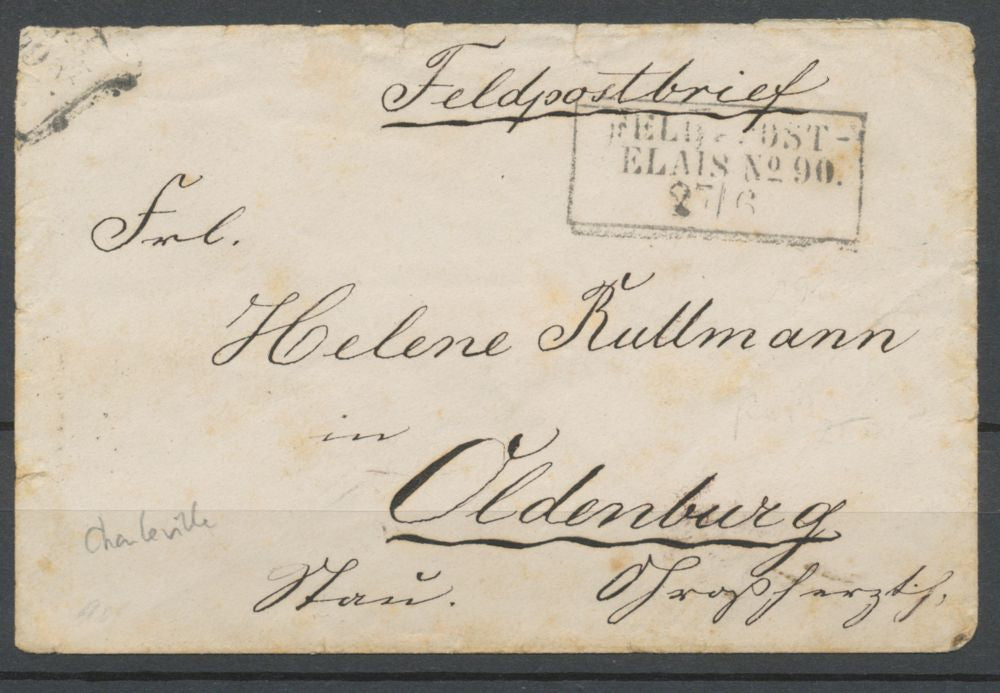 Feldpostbrief
FELD-POST-
ELAIS No 90.
27/6
Frl.
Helene Ruttmann
in
Oldenburg
Stau. Großherzth.
Charleville